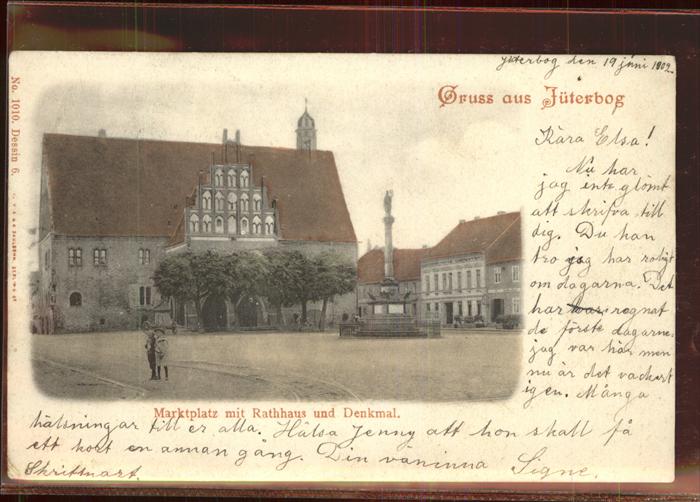 Jüterbog den 19 juni 1902.
Gruss aus Jüterbog
No. 1010. Dessin 6.
Kära Elsa!
Nu har
jag inte glömt
att skrifva till
dig. Du kan
tro jag har roligt
om dagarna. Det
har regnat
de förste dagarne,
jag var här men
nu är det vackert
igen. Många
Marktplatz mit Rathhaus und Denkmal.
hälsningar till er alla. Hälsa Jenny att hon skall få
ett kort en annan gång. Din väninna Signe.
Skrift snart.